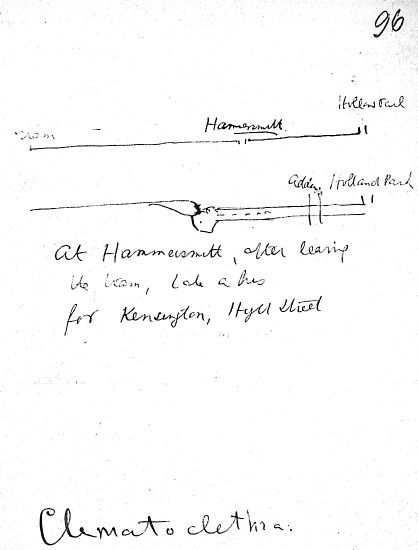 96
Holland Park
Hammersmith
tram
Addn. Holland Park
At Hammersmith, after leaving
the tram, take a bus
for Kensington, High Street
Clematoclethra.